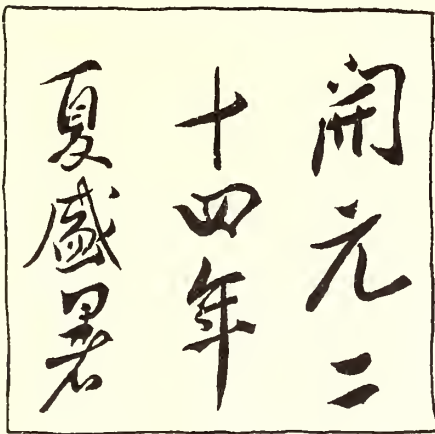 開元二
十四年
夏盛暑